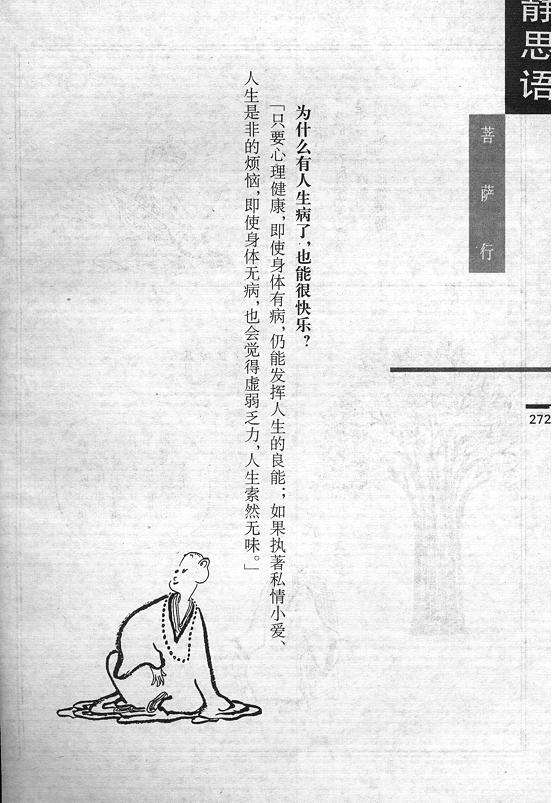 静思语
菩萨行
272
为什么有人生病了，也能很快乐？
「只要心理健康，即使身体有病，仍能发挥人生的良能；如果执著私情小爱、
人生是非的烦恼，即使身体无病，也会觉得虚弱乏力，人生索然无味。」